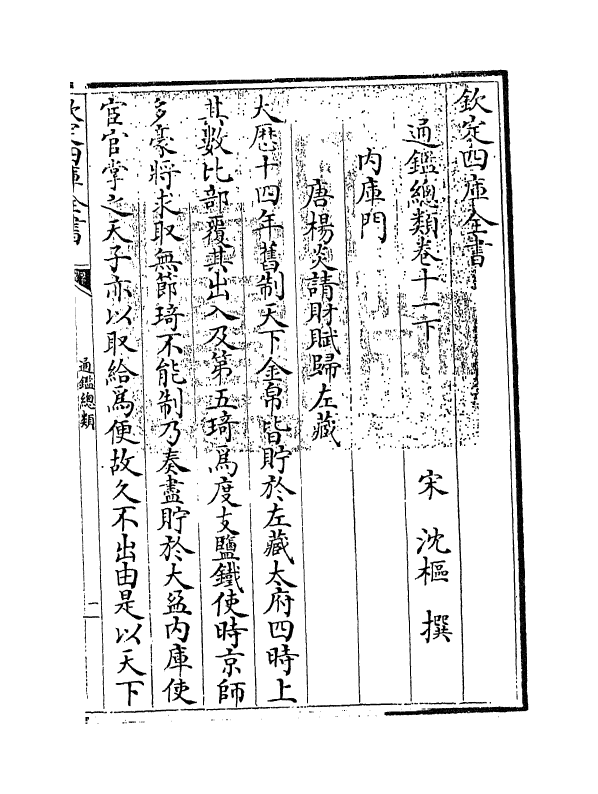 欽定四庫全書
通鑑總類卷十一下
宋 沈樞 撰
內庫門
唐楊炎請財賦歸左藏
大厯十四年舊制天下金帛皆貯於左藏太府四時上
其數比部覆其出入及第五琦為度支鹽鐵使時京師
多豪將求取無節琦不能制乃奏盡貯於大盈内庫使
宦官掌之天子亦以取給為便故久不出由是以天下
欽定四庫全書
通鑑總類